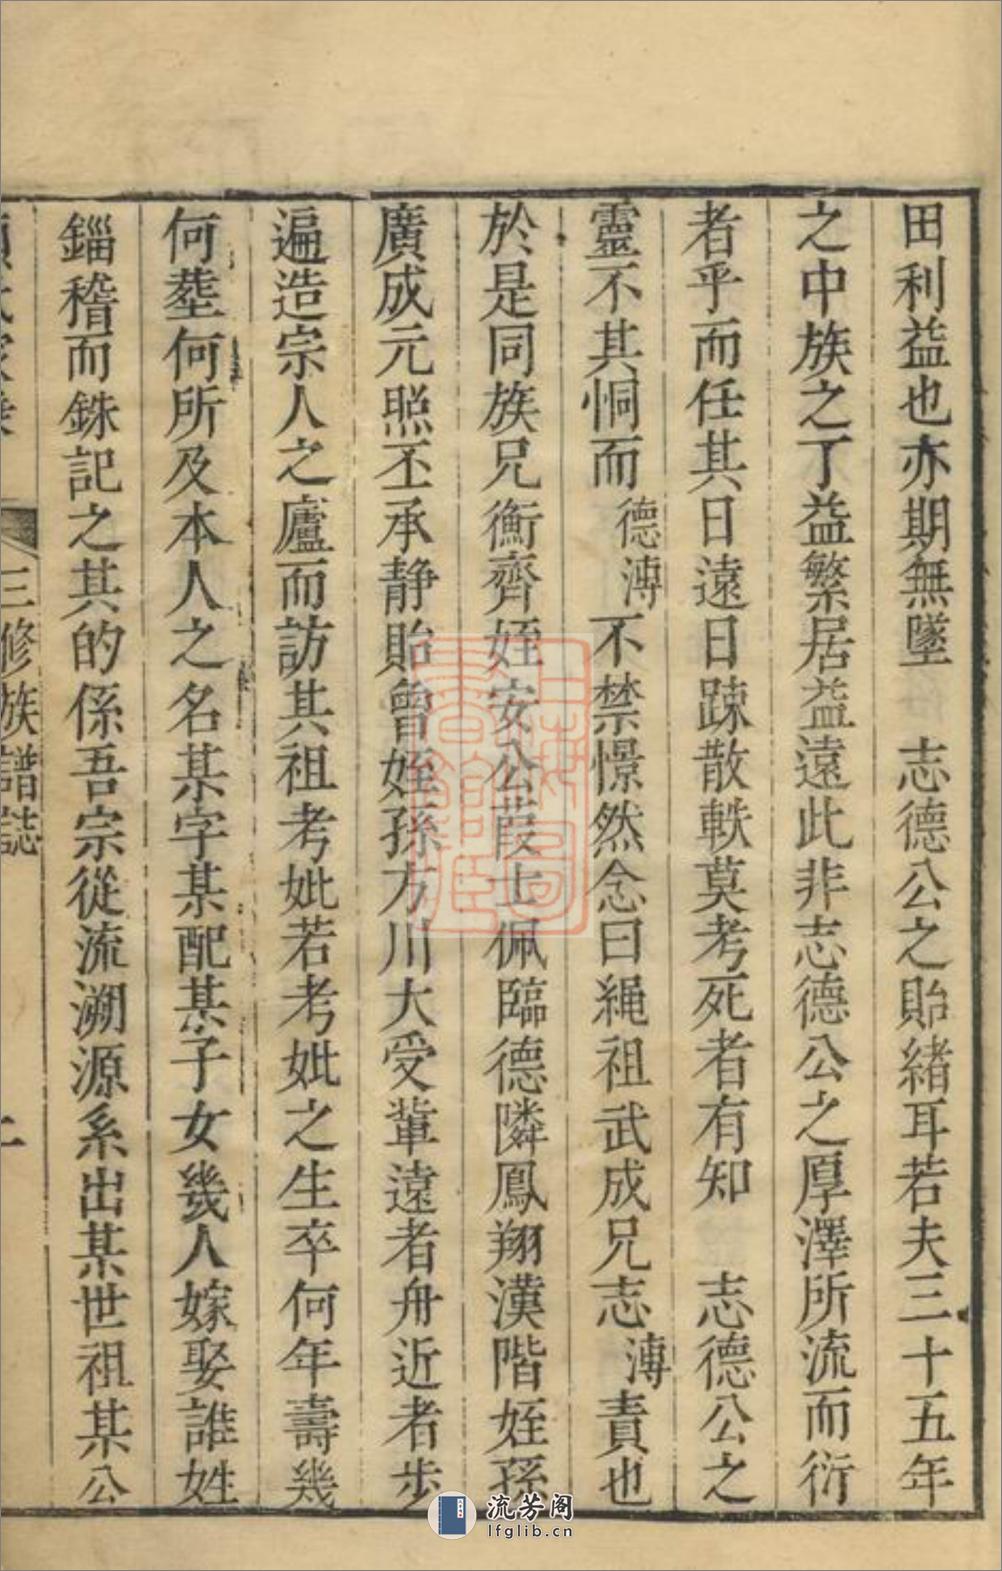 田利益也亦期無墜　志德公之貽緒耳若夫三十五年
之中族之丁益繁居益遠此非志德公之厚澤所流而衍
者乎而任其日遠日疎散軼莫考死者有知　志德公之
靈不其恫而德溥不禁憬然念曰繩祖武成兄志溥責也
於是同族兄衡齊姪安公葭士佩臨德隣鳳翔漢階姪孫
廣成元照丕承静貽曾姪孫方川大受輩遠者舟近者步
遍造宗人之廬而訪其祖考妣若考妣之生卒何年壽幾
何塟何所及本人之名某字某配某子女幾人嫁娶誰姓
錙稽而銖記之其的係吾宗從流溯源系出某世祖某公
三修族譜誌
流芳阁
lfglib.cn